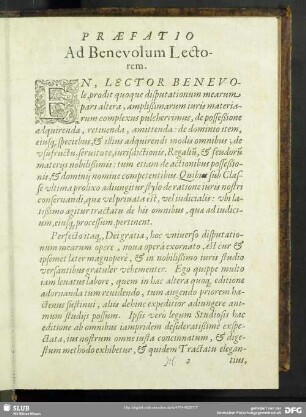 PRÆFATIO
Ad Benevolum Lecto-
rem.
EN, LECTOR BENEVO-
le, prodit quoque disputationum mearum
pars altera, amplissimarum iuris materia-
rum complexus pulcherrimus, de possessione
adquirenda, retinenda, amittenda: de dominio item,
eiusq́, speciebus, & illius adquirendi modis omnibus, de
vsufructu, seruitute, iurisdictione, Regaliũ, & feudorũ
materijs nobilissimis: tum etiam de actionibus possessio-
nis, & dominij nomine competentibus. Quibus sub Clas-
se vltima prolixo adiungitur stylo de ratione iuris nostri
conseruandi, qua vel priuata est, vel iudicialis: vbi la-
tissimo agitur tractatu de his omnibus, qua ad iudici-
um, eiusq́, processum, pertinent.
Perfecto itaq́, Dei gratia, hoc vniuerso disputatio-
num mearum opere, noua opera exornato, est cur &
ipsemet later magnopere, & in nobilissimo iuris studio
versantibus gratuler vehementer. Ego quippe multo
iam leuatus labore, quem in hac altera quoq́, editione
adornanda tum reuidendo, tum augendo priorem ha-
ctenus sustinui, alio debine expeditior adiungere ani-
mum studijs possum. Ipsi verò legum Studiosi hac
editione ab omnibus iampridem desideratissime exspe-
ctata, ius nostrum omne iusta concinnatum, & dige-
stum methodo exhibetur, & quidem Tractatu elegan-
2
tiss,
SLUB
Wir führen Wissen.